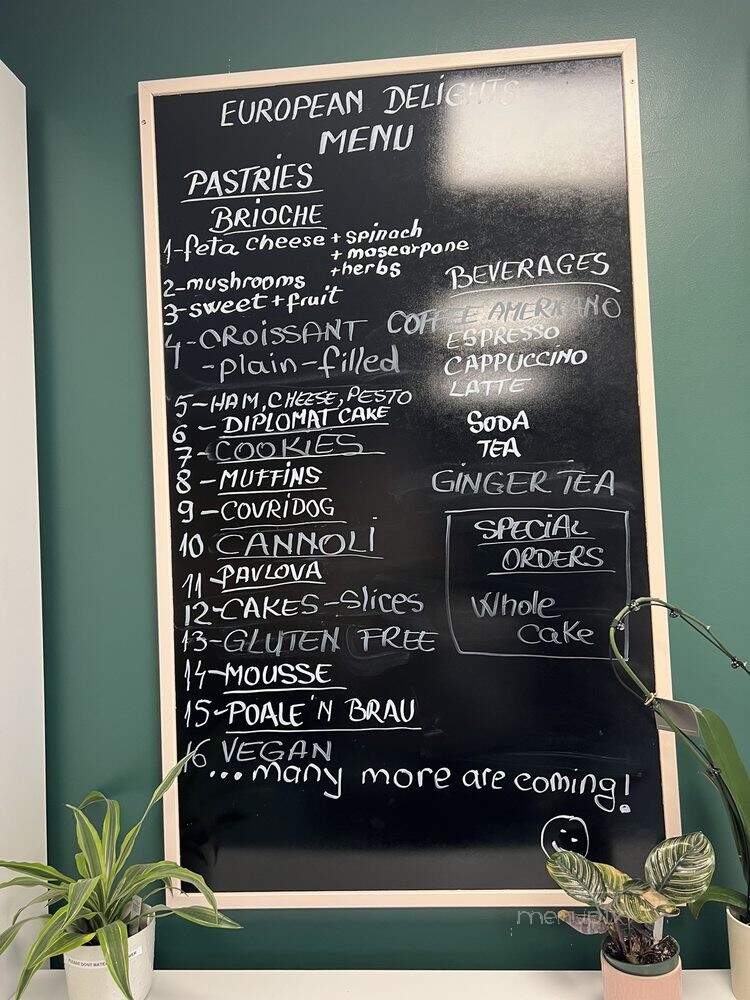 EUROPEAN DELIGHTS
MENU
PASTRIES
BRIOCHE
1-feta cheese + spinach
+ mascarpone
+herbs
2-mushrooms
3-sweet + fruit
4-CROISSANT
-plain-filled
5-HAM, CHEESE, PESTO
6-DIPLOMAT CAKE
7-COOKIES
8-MUFFINS
9-COVRIDOG
10 CANNOLI
11-PAVLOVA
12-CAKES-Slices
13-GLUTEN FREE
14-MOUSSE
15-POALE'N BRAU
16 VEGAN
...many more are coming!
BEVERAGES
COFFEE AMERICANO
ESPRESSO
CAPPUCCINO
LATTE
SODA
TEA
GINGER TEA
SPECIAL
ORDERS
Whole
cake